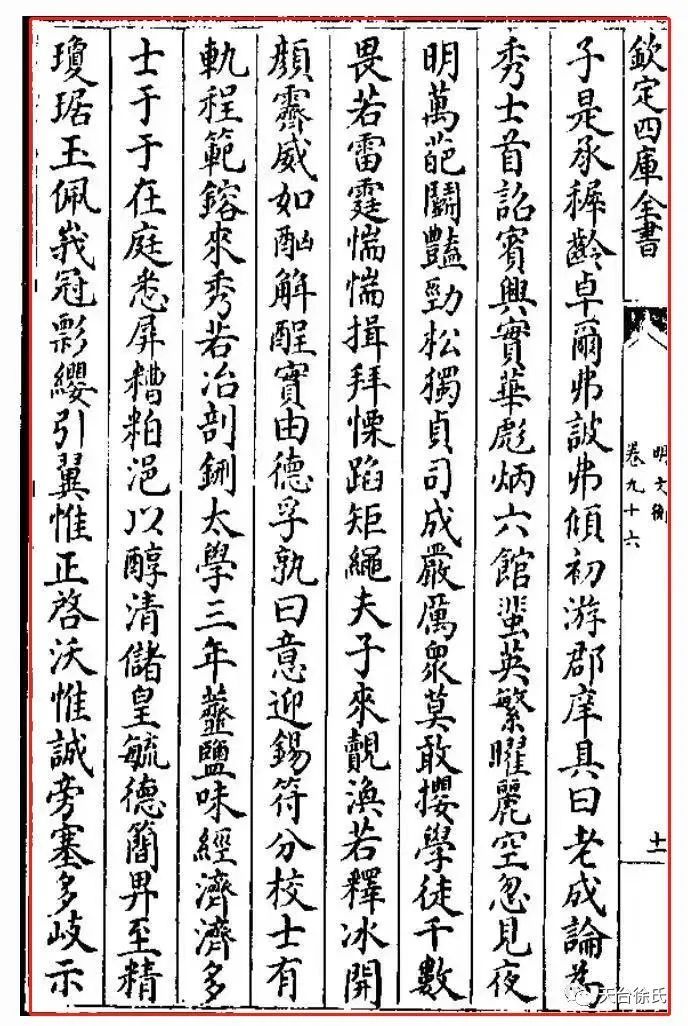 欽定四庫全書
明文衡
卷九十六
十一
子是承稺齡卓爾弗詖弗傾初游郡庠具曰老成論為
秀士首詔賓興實華彪炳六館蜚英繁曜麗空忽見夜
明萬葩鬭豔勁松獨貞司成嚴厲衆莫敢攖學徒千數
畏若雷霆惴惴揖拜慄蹈矩繩夫子來覿渙若釋冰開
顔霽威如酗解酲實由德孚孰曰意迎錫符分校士有
軌程範鎔來秀若冶剖鉶太學三年虀鹽味經濟濟多
士于于在庭悉屏糟粕浥以醇清儲皇毓德簡畀至精
瓊琚玉佩峩冠影纓引翼惟正啓沃惟誠旁塞多岐示
天台徐氏